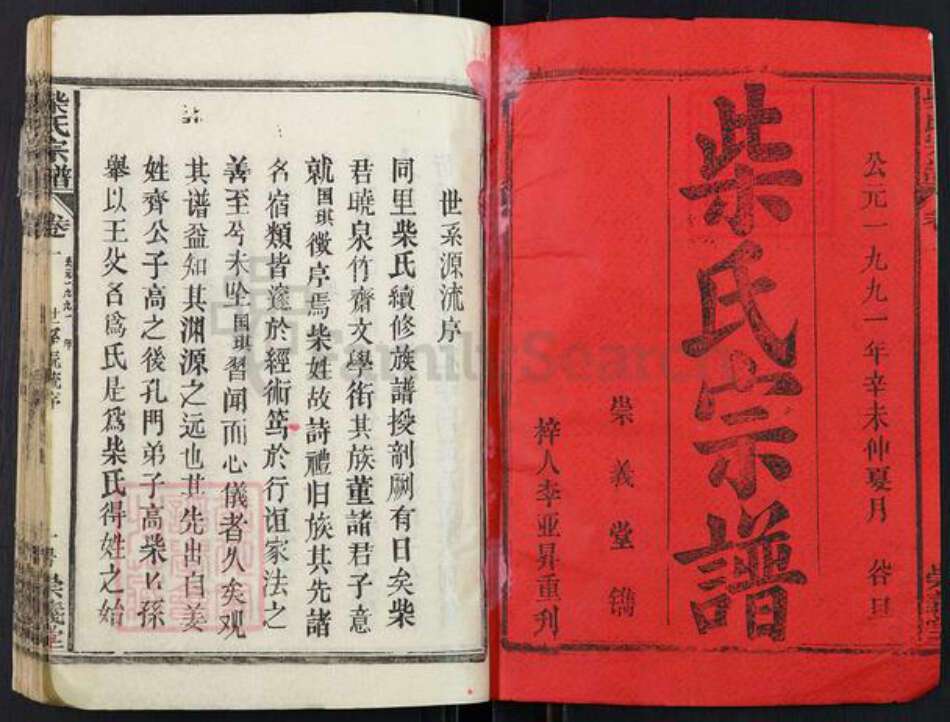 公元一九九一年辛未仲夏月 谷旦
柴氏宗譜
崇義堂鐫
梓人李亚昇重刋
世系源流序
同里柴氏續修族譜授剞劂有日矣柴
君曉泉竹齋文學術其族董諸君子意
就国琪徵序焉柴姓故詩禮归族其先諸
名宿類皆邃於經術笃於行谊家法之
善至兮未坠国琪習闻而心儀者久矣观
其谱益知其渊源之远也其先出自姜
姓齊公子高之後孔門弟子高柴其孫
舉以王父名爲氏是爲柴氏得姓之始
柴氏宗譜
卷一
世系源流序
崇義堂
FamilySearch